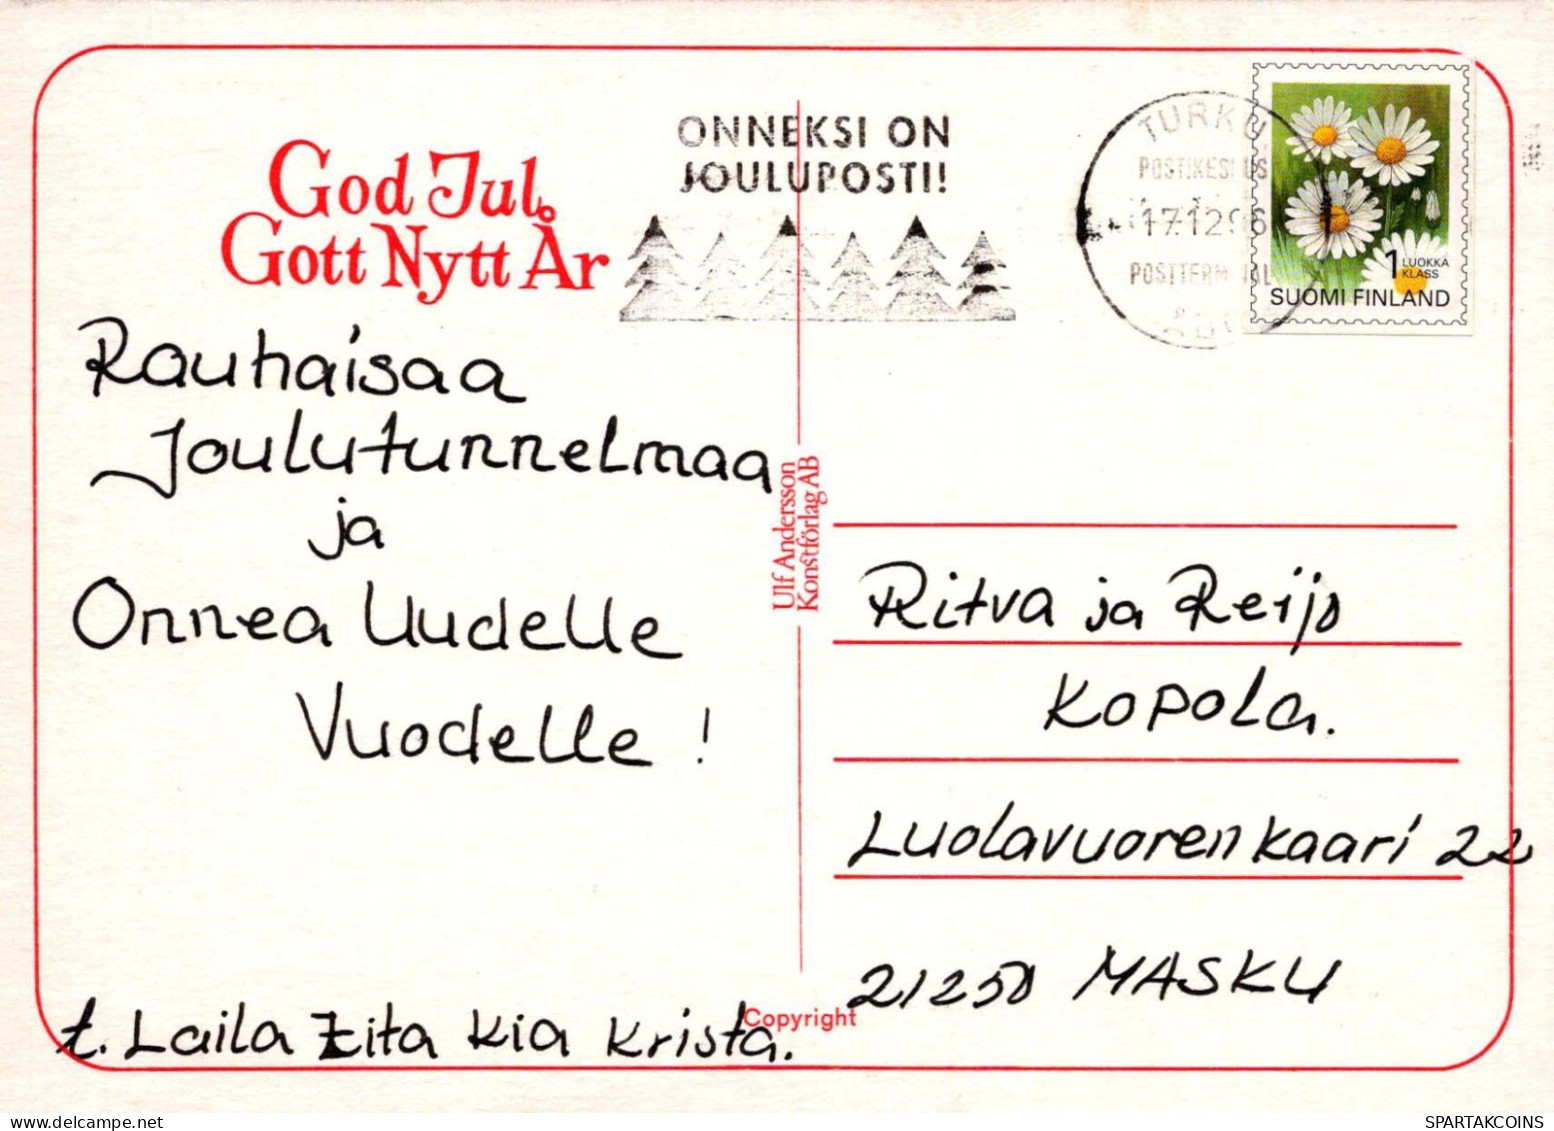 God Jul
Gott Nytt År
ONNEKSI ON
JOULUPOSTI!
TURKU
POSTIKESKUS
17.12.96
POSTTERMINAL
ÅBO
1 LUOKKA
KLASS
SUOMI FINLAND
Rauhaisaa
Joulutunnelmaa
ja
Onnea Uudelle
Vuodelle!
t. Laila Zita Kia Krista.
Ulf Andersson
Konstförlag AB
Copyright
Ritva ja Reijo
Kopola.
Luolavuorenkaari 22
21250 MASKU
SPARTAKCOINS